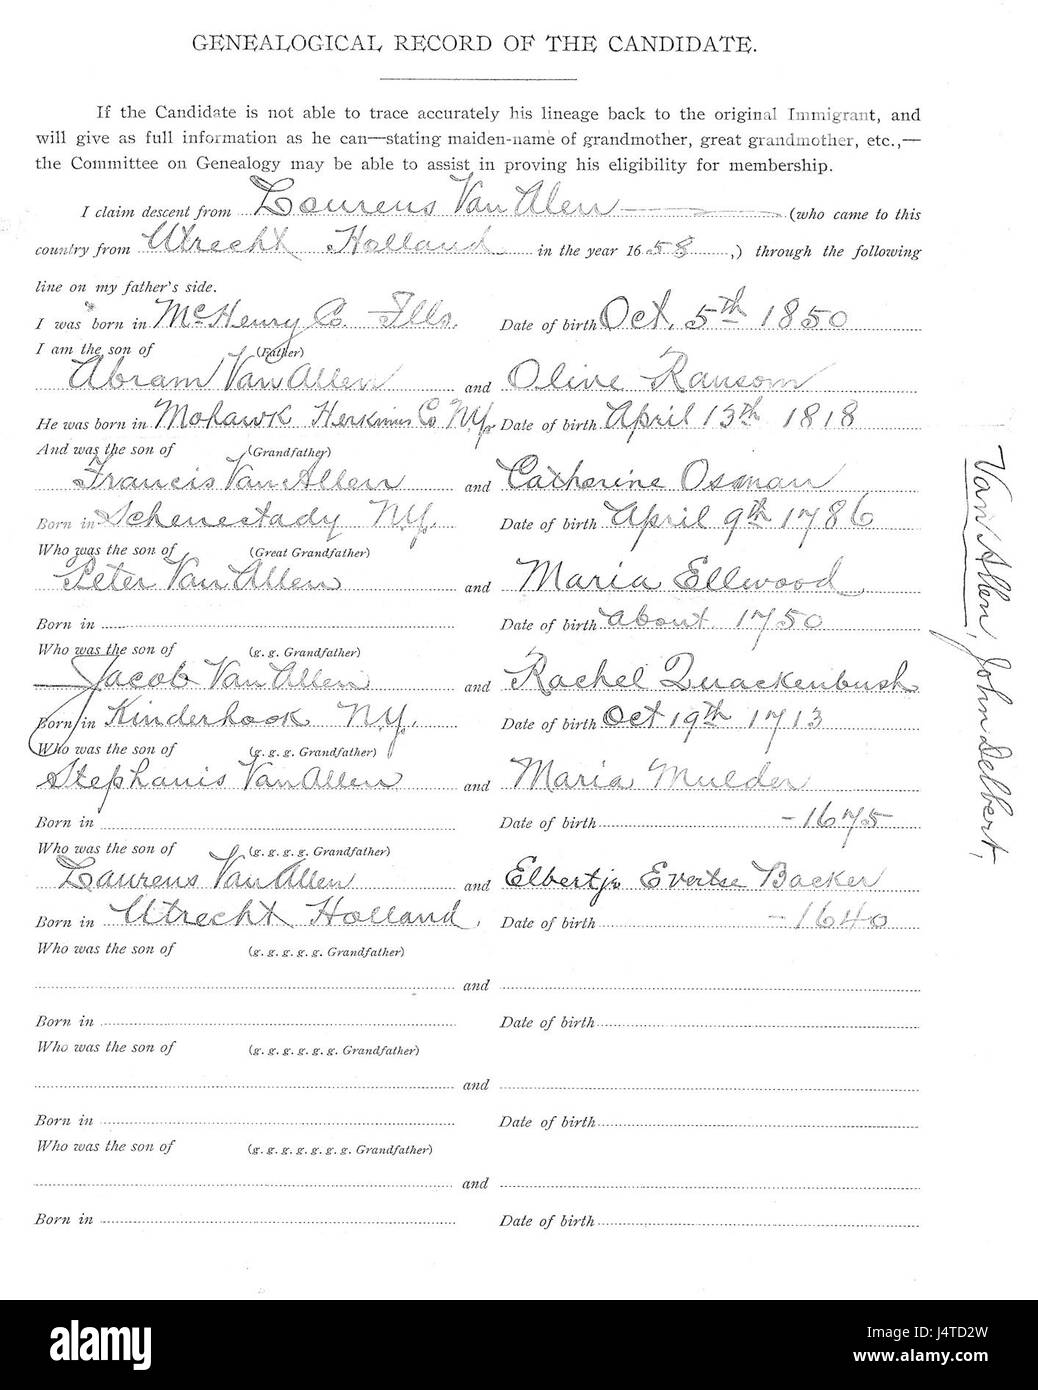 GENEALOGICAL RECORD OF THE CANDIDATE.
If the Candidate is not able to trace accurately his lineage back to the original Immigrant, and
will give as full information as he can—stating maiden-name of grandmother, great grandmother, etc.,—
the Committee on Genealogy may be able to assist in proving his eligibility for membership.
I claim descent from Lourens Van Alen (who came to this
country from Utrecht Holland in the year 1658,) through the following
line on my father's side.
I was born in McHenry Co. Ills. Date of birth Oct. 5th 1850
I am the son of (Father)
Abram Van Allen and Olive Ransom
He was born in Mohawk Herkimer Co N.Y. Date of birth April 13th 1818
And was the son of (Grandfather)
Francis Van Allen and Catherine Osman
Born in Schenectady N.Y. Date of birth April 9th 1786
Who was the son of (Great Grandfather)
Peter Van Allen and Maria Ellwood
Born in Date of birth about 1750
Who was the son of (g. g. Grandfather)
Jacob Van Allen and Rachel Quackenbush
Born in Kinderhook N.Y. Date of birth Oct 19th 1713
Who was the son of (g. g. g. Grandfather)
Stephanis Van Allen and Maria Mulder
Born in Date of birth -1675
Who was the son of (g. g. g. g. Grandfather)
Laurens Van Allen and Elbertje Evertse Backer
Born in Utrecht Holland, Date of birth -1640
Who was the son of (g. g. g. g. g. Grandfather)
and
Born in Date of birth
Who was the son of (g. g. g. g. g. g. Grandfather)
and
Born in Date of birth
Who was the son of (g. g. g. g. g. g. g. Grandfather)
and
Born in Date of birth
Van Allen, John Delbert,
alamy
Image ID: J4TD2W
www.alamy.com